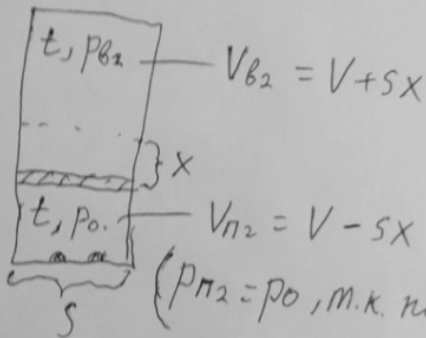 t, pв2
Vв2 = V + Sx
x
t, p0.
Vп2 = V - Sx
S
(pп2 = p0, т.к.